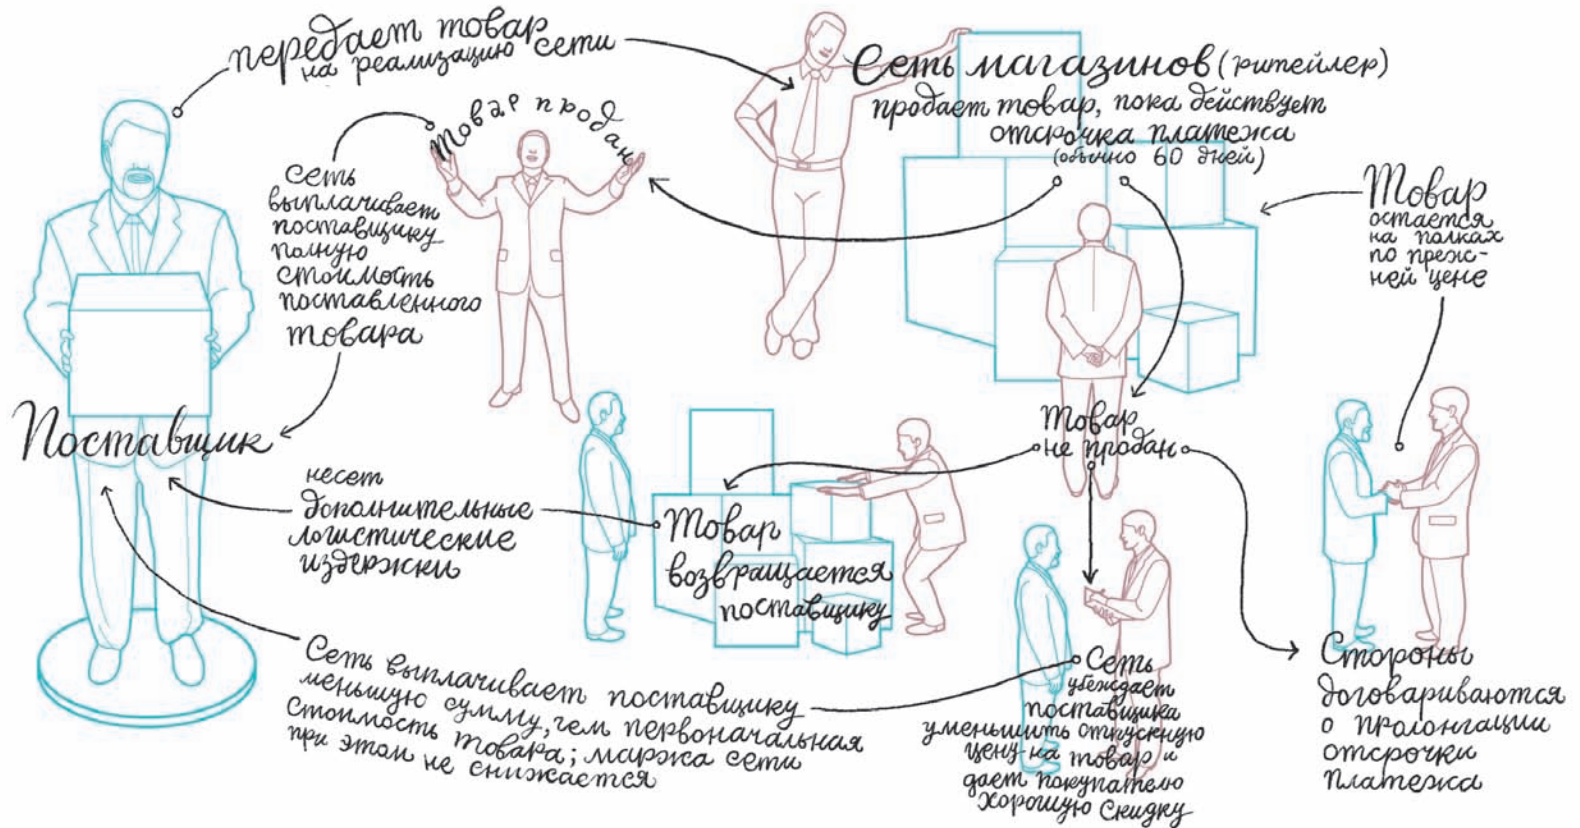 передает товар
на реализацию сети
Сеть магазинов (ритейлер)
продает товар, пока действует
отсрочка платежа
(обычно 60 дней)
Товар продан
сеть
выплачивает
поставщику
полную
стоимость
поставленного
товара
Товар
остается
на полках
по преж-
ней цене
Поставщик
Товар
не продан
несет
дополнительные
логистические
издержки
Товар
возвращается
поставщику
Сеть выплачивает поставщику
меньшую сумму, чем первоначальная
стоимость товара; маржа сети
при этом не снижается
Сеть
убеждает
поставщика
уменьшить отпускную
цену на товар и
дает покупателю
хорошую скидку
Стороны
договариваются
о пролонгации
отсрочки
платежа